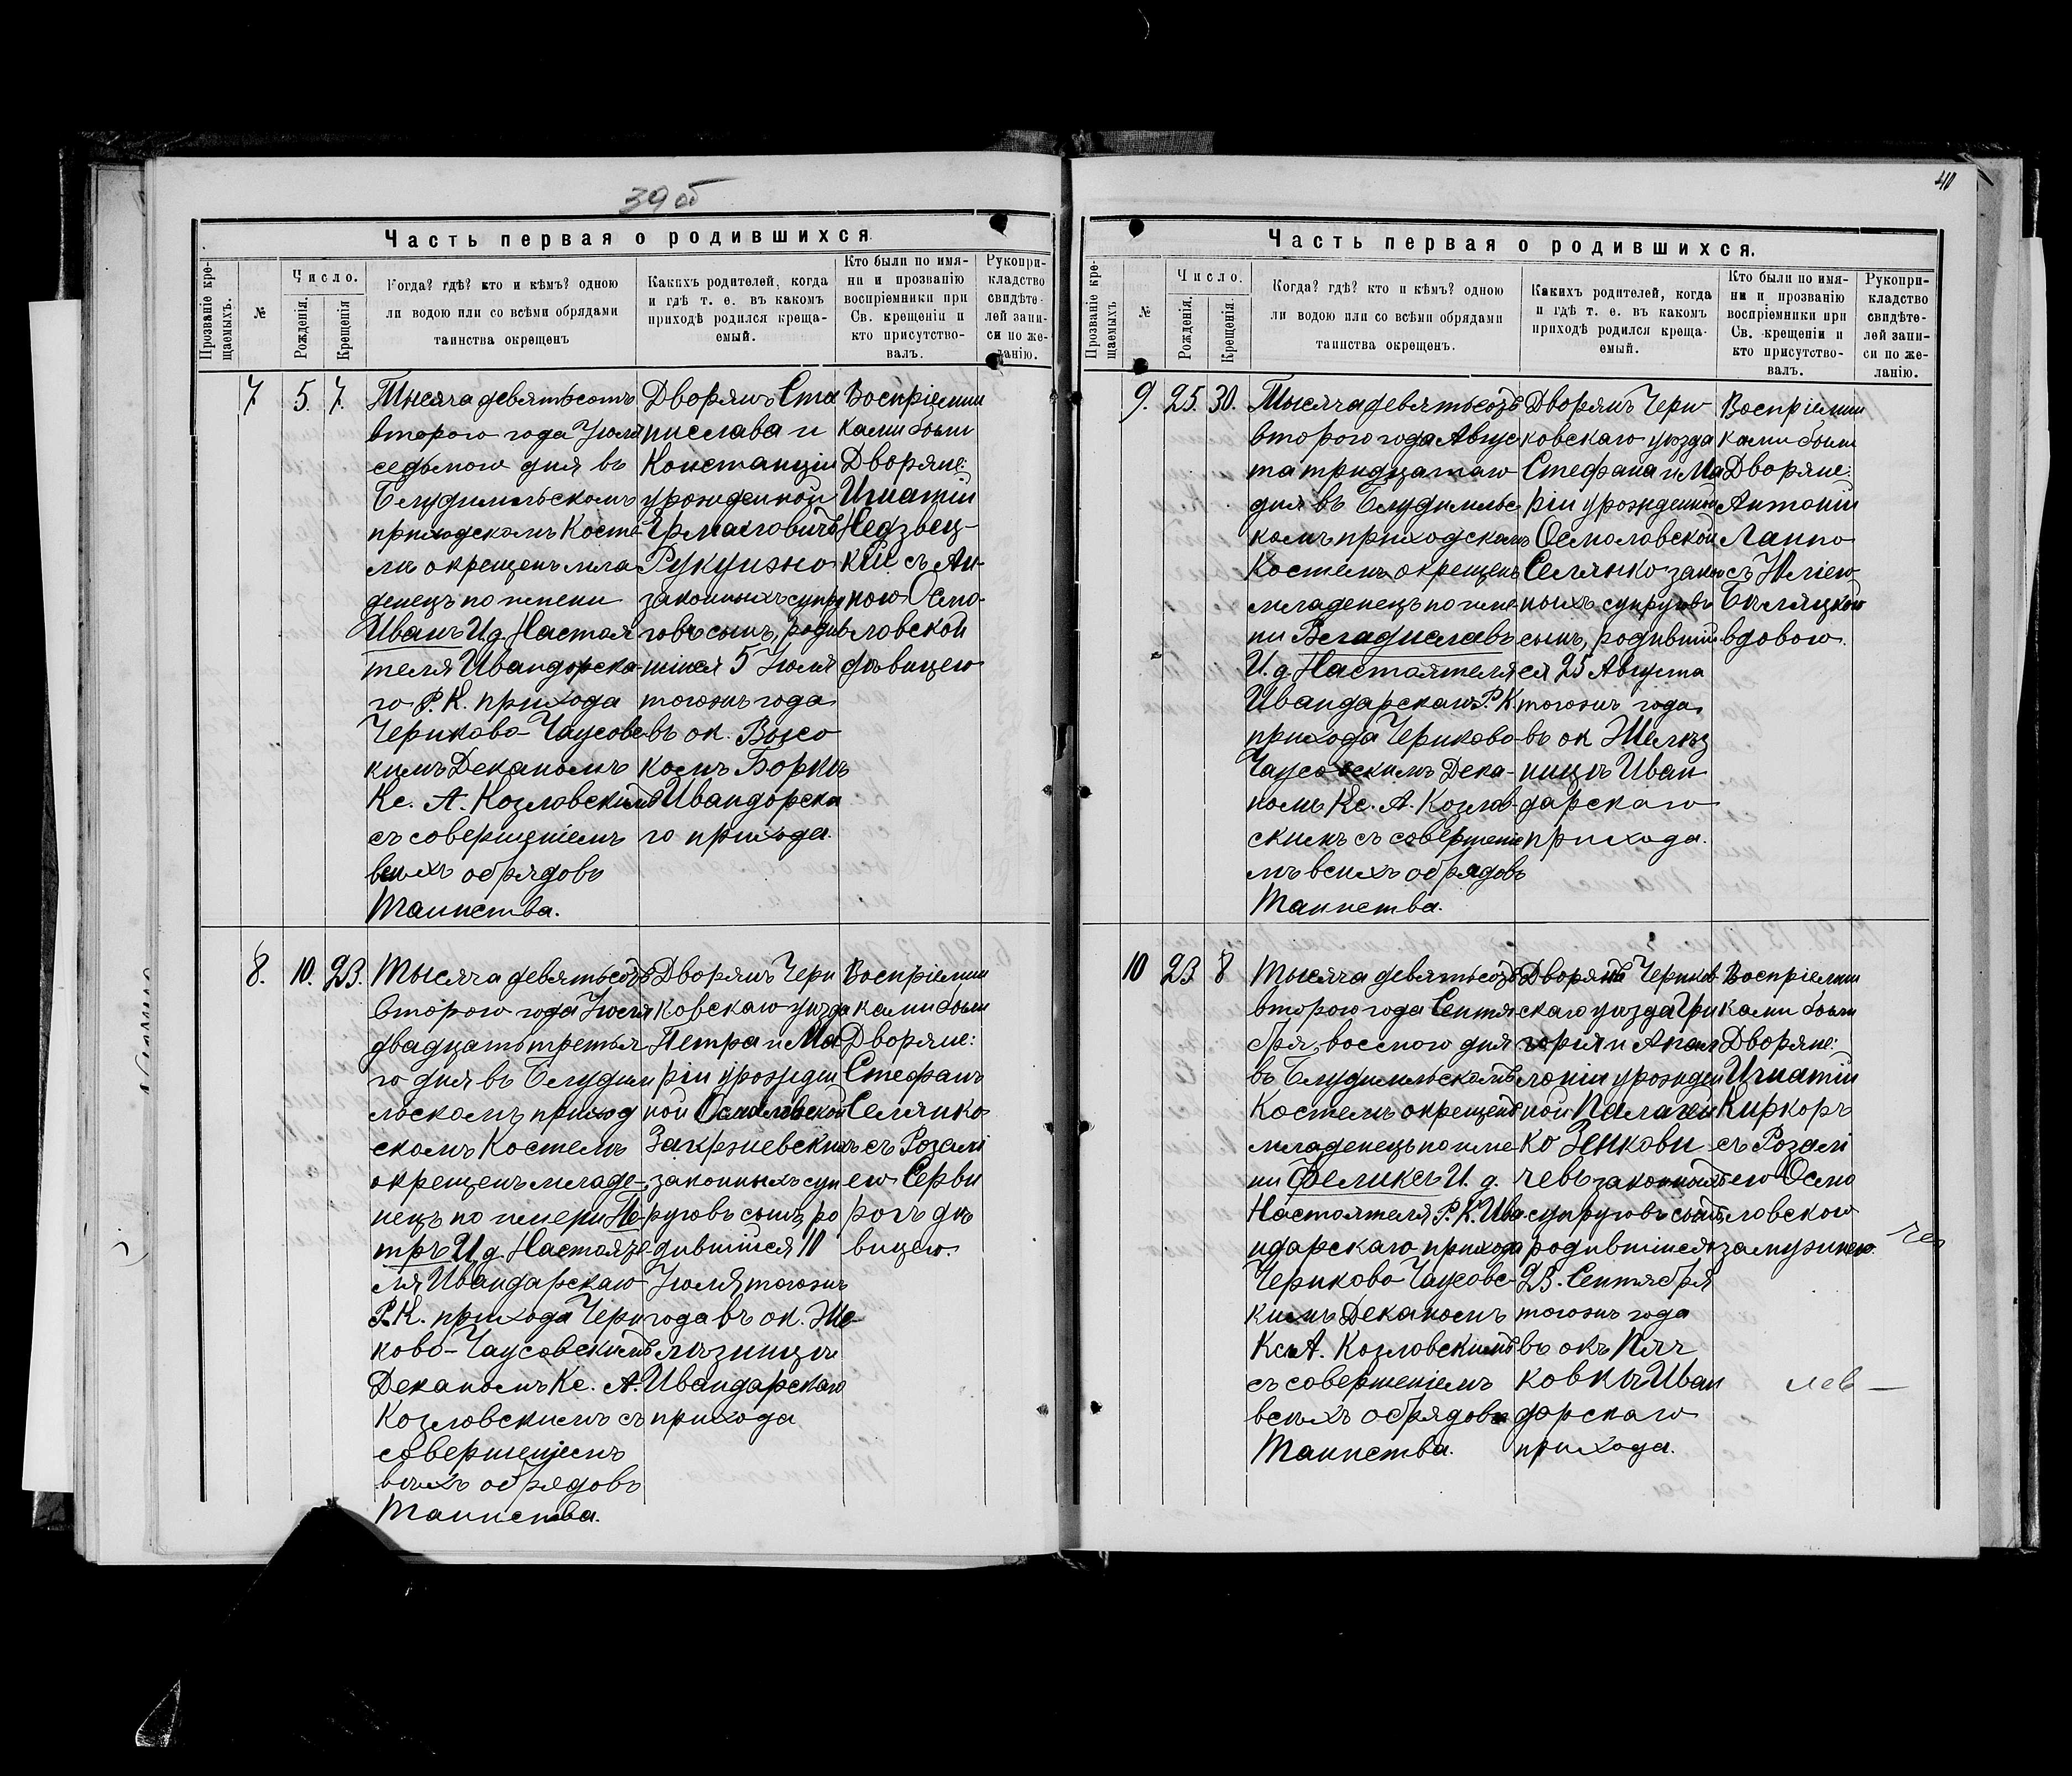 39 об
Часть первая о родившихся.
Прозваніе кре-
щаемыхъ.
№
Число.
Рожденія.
Крещенія
Когда? гдѣ? кто и кѣмъ? одною
ли водою или со всѣми обрядами
таинства окрещенъ
Какихъ родителей, когда
и гдѣ т. е. въ какомъ
приходѣ родился креща-
емый.
Кто были по имя-
ни и прозванію
воспріемники при
Св. крещеніи и
кто присутство-
валъ.
Рукопри-
кладство
свидѣте-
лей запи-
си по же-
ланію.
7 5. 7.
Тысяча девятьсотъ
второго года Іюля
седьмого дня въ
Белудимльскомъ
приходскомъ косте
лѣ окрещенъ мла
денецъ по имени
Иванъ И.д. Настоя
теля Ивандорска-
го Р.К. прихода
Чериково-Чаусовс
кимъ Деканомъ
Кс. А. Козловскимъ
съ совершеніемъ
всѣхъ обрядовъ
Таинства.
Дворянъ Ста
нислава и
Констанціи
урожденной
Ермаловичъ
Рукуизно
законныхъ супру
говъ сынъ, родив
шійся 5 Іюля
тогожъ года
въ ок. Высо
комъ Боркѣ
Ивандорска
го прихода.
Воспріемни
ками были
Дворяне:
Игнатій
Недзвец-
кій съ Ан-
ною Смо-
ловской
дѣвицею
8. 10. 23.
Тысяча девятьсотъ
второго года Іюля
двадцать третья
го дня въ Белудим
льскомъ приход
скомъ Костелѣ
окрещенъ младе-
нецъ по имени Пе-
тръ И.д. Настояте
ля Ивандарскаго
Р.К. прихода Чери
ково-Чаусовскимъ
Деканомъ Кс. А.
Козловскимъ съ
совершеніемъ
всѣхъ обрядовъ
Таинства.
Дворянъ Чери
ковскаго уѣзда
Петра и Ма
ріи урожден
ной Осмоловской
Закржевскихъ
законныхъ суп
руговъ сынъ ро
дившійся 10
Іюля тогожъ
года въ ок. Же-
лѣзницѣ
Ивандарскаго
прихода
Воспріемни
ками были
Дворяне:
Стефанъ
Селянко
съ Розалі
ею Серви
рогъ дѣ
вицею.
40
Часть первая о родившихся.
Прозваніе кре-
щаемыхъ
№
Число.
Рожденія.
Крещенія
Когда? гдѣ? кто и кѣмъ? одною
ли водою или со всѣми обрядами
таинства окрещенъ.
Какихъ родителей, когда
и гдѣ т. е. въ какомъ
приходѣ родился креща-
емый.
Кто были по имя-
ни и прозванію
воспріемники при
Св. крещеніи и
кто присутство-
валъ.
Рукопри-
кладство
свидѣте-
лей запи-
си по же-
ланію.
9. 25. 30.
Тысяча девятьсотъ
второго года Авгус
та тридцатаго
дня въ Белудимльс
комъ приходскомъ
Костелѣ окрещенъ
младенецъ по име
ни Владиславъ
И.д. Настоятеля
Ивандарскаго Р.К.
прихода Чериково-
Чаусовскимъ Дека-
номъ Кс. А. Козлов-
скимъ съ совершеніе
мъ всѣхъ обрядовъ
Таинства.
Дворянъ Чери
ковскаго уѣзда
Стефана и Ма
ріи урожденной
Осмоловской
Селянко закон
ныхъ супруговъ
сынъ, родивші
ся 25 Августа
тогожъ года
въ ок Желѣз
ницѣ Иван
дарскаго
прихода.
Воспріемни
ками были
Дворяне:
Антоній
Лаппо
съ Юліею
Бѣляцкою
вдовою.
10 23 8
Тысяча девятьсотъ
второго года Сентя
бря, восмого дня
въ Белудимльскомъ
Костелѣ окрещенъ
младенецъ по име
ни Феликсъ И.д.
Настоятеля Р.К. Ива
ндарскаго прихода
Чериково-Чаусовс-
кимъ Деканомъ
Кс. А. Козловскимъ
съ совершеніемъ
всѣхъ обрядовъ
Таинства.
Дворянъ Чериков
скаго уѣзда Гри
горія и Апол
лоніи урожден
ной Палачей
ко Зенкови
чевъ законныхъ
супруговъ сынъ
родившійся
23. Сентября
тогожъ года
въ окъ Пяч
ковкѣ Иван
дарскаго
прихода.
Воспріемни
ками были
Дворяне:
Игнатій
Киркоръ
съ Розалі
ею Осмо
ловскою
замужнею.